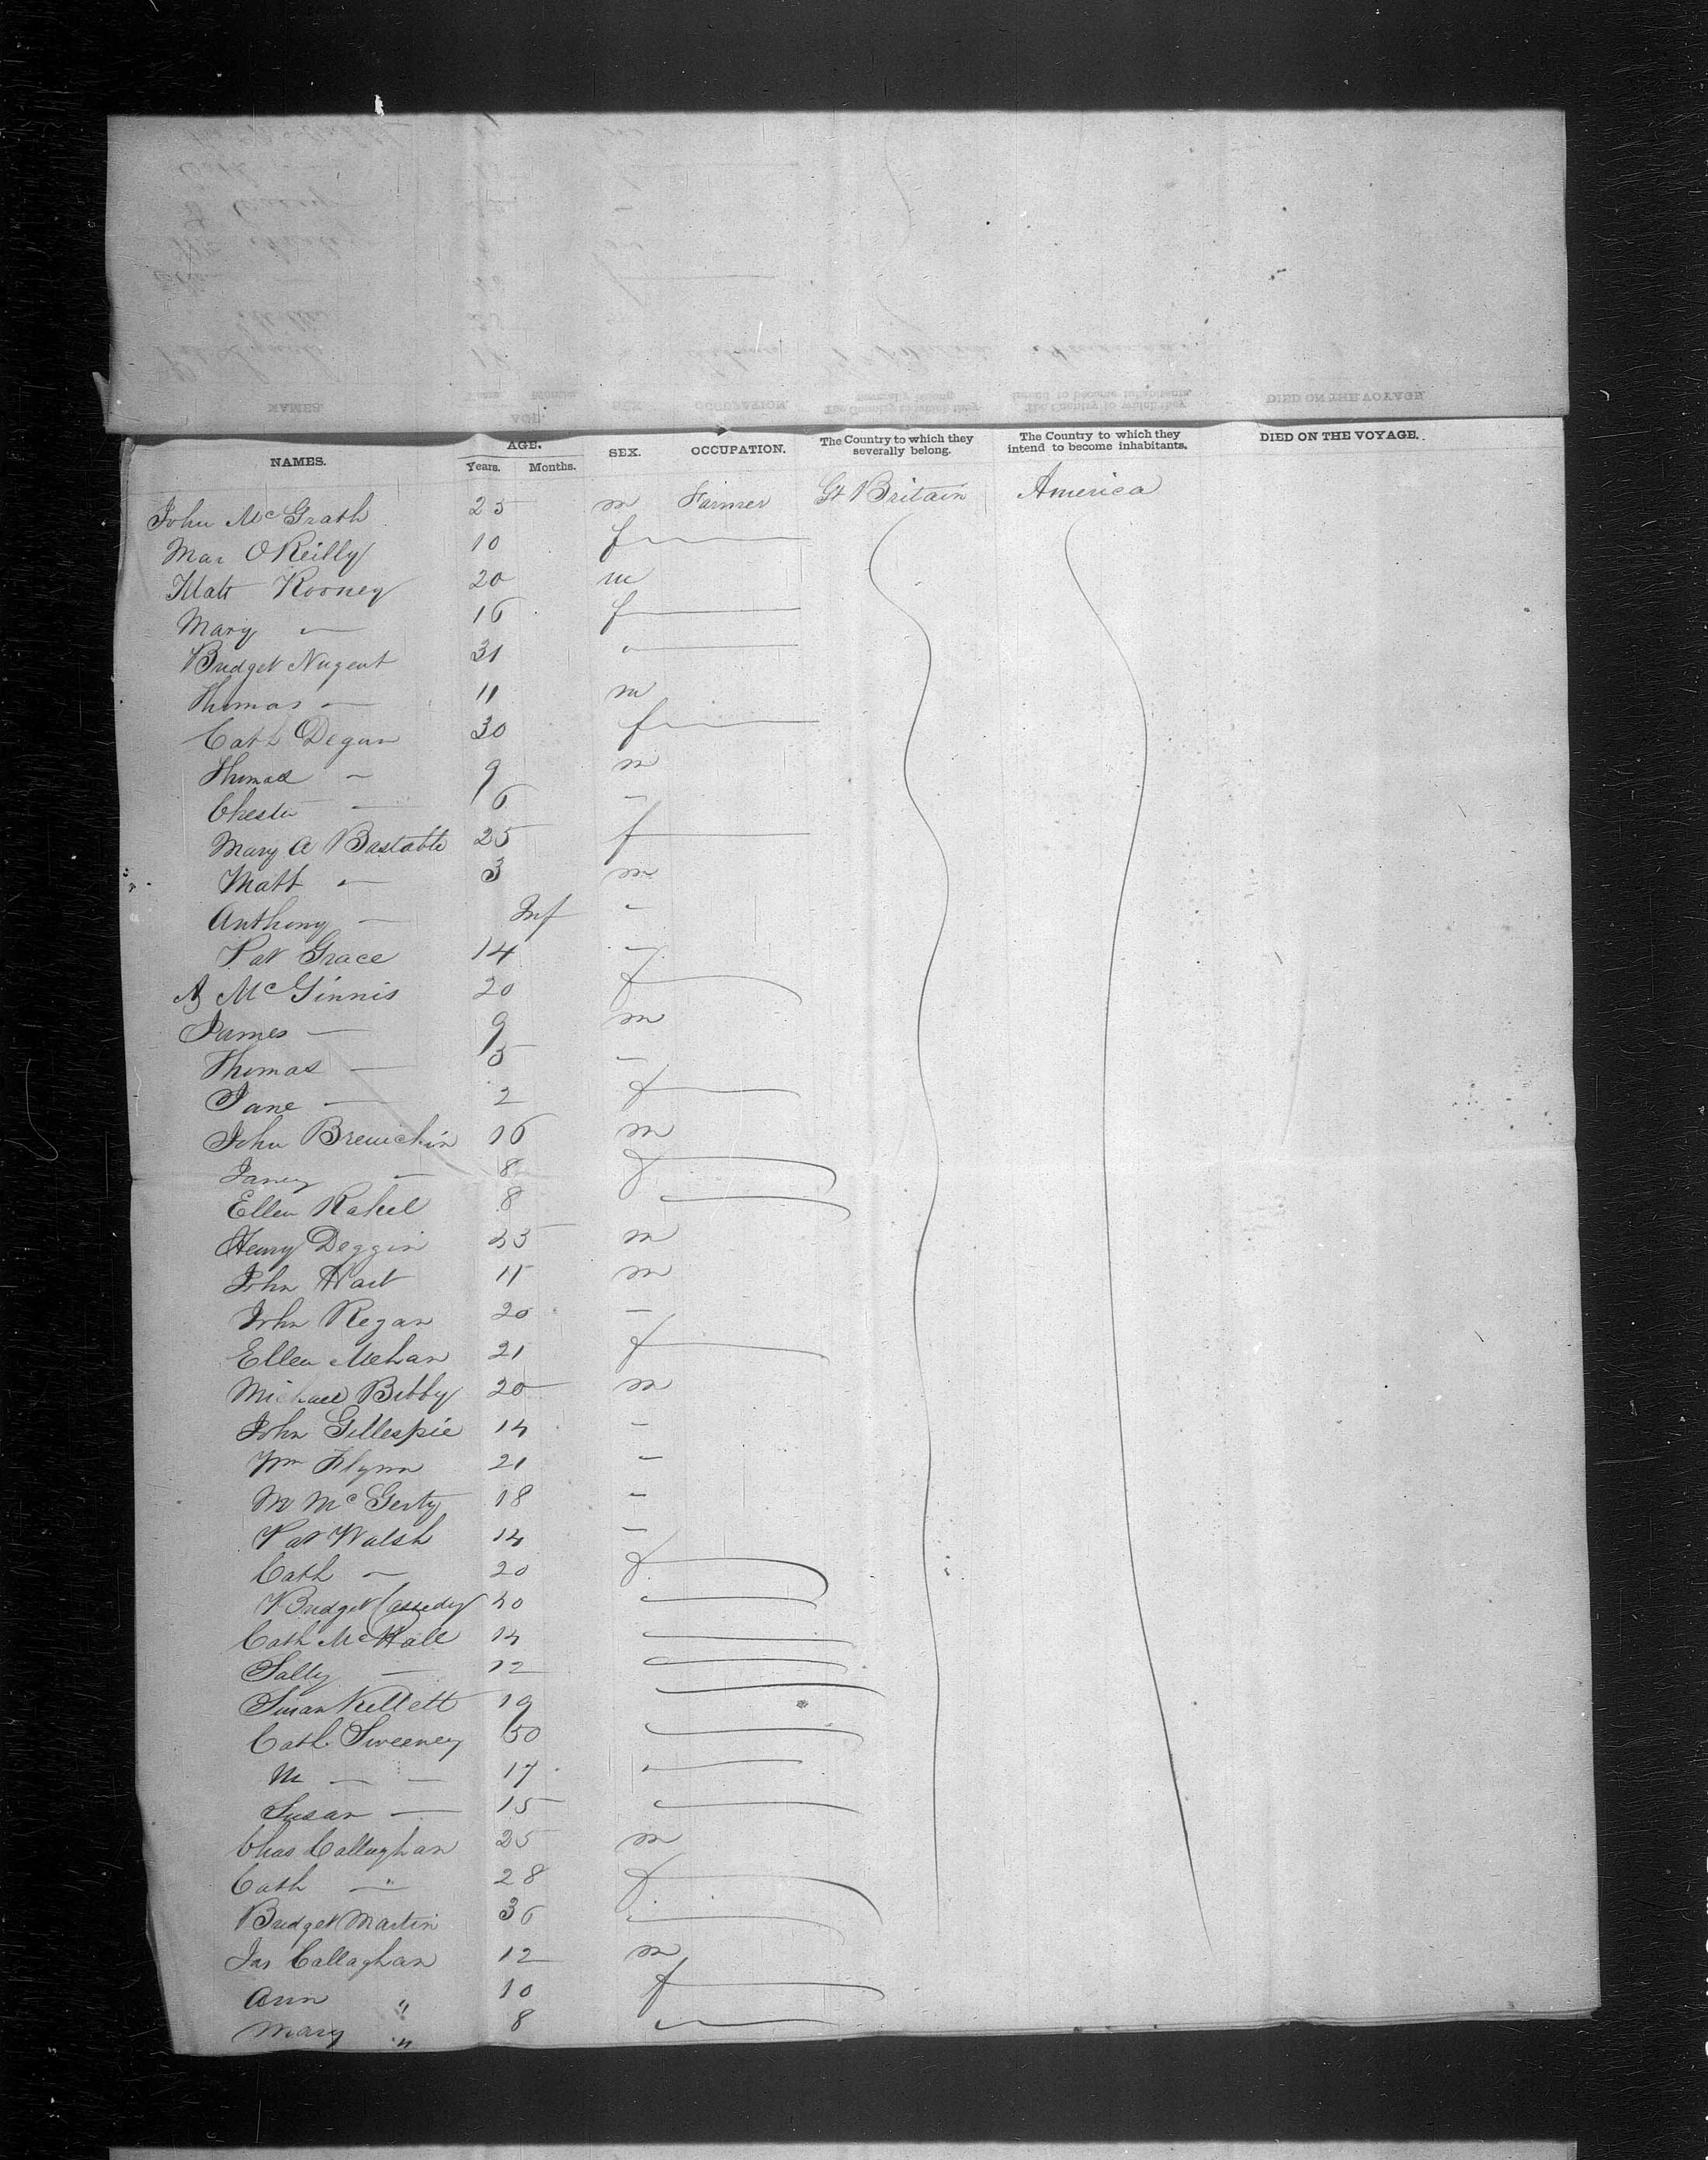 NAMES. AGE. Years. Months. SEX. OCCUPATION. The Country to which they severally belong. The Country to which they intend to become inhabitants. DIED ON THE VOYAGE.
John McGrath 25 m Farmer Gt Britain America
Mar OReilly 10 f
Matt Rooney 20 m
Mary — 16 f
Bridget Nugent 31 "
Thomas — 11 m
Cath Degan 30 f
Thomas — 9 m
Chester — 6 —
Mary A Bastable 25 f
Matt — 3 m
Anthony — Inf —
Pat Grace 14 —
McGinnis 20 f
James — 9 m
Thomas — 5 —
Jane — 2 f
John 16 m
— 8 f
Ellen 8
Henry Deggin m
John Hart m
John Regan 20 —
Ellen Mehan 21 f
Michael Bibby 20 m
John Gillespie 14 —
Wm Flynn 21 —
M McGerty 18 —
Pat Walsh 14 —
Cath — 20 f
Bridget Cassedy 40
Cath McHale 14
Sally — 12
Susan Kellett 19
Cath Sweeney 50
M — — 17
Susan — 15
Chas Callaghan 25 m
Cath — " 28 f
Bridget Martin 36
Jas Callaghan 12 m
Ann " 10 f
Mary " 8